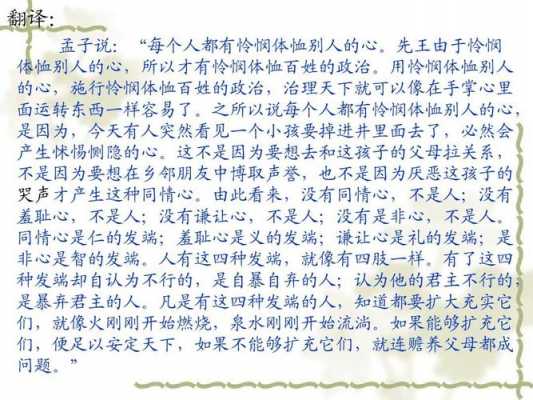 翻译：
孟子说：“每个人都有怜悯体恤别人的心。先王由于怜悯
体恤别人的心，所以才有怜悯体恤百姓的政治。用怜悯体恤别人
的心，施行怜悯体恤百姓的政治，治理天下就可以像在手掌心里
面运转东西一样容易了。之所以说每个人都有怜悯体恤别人的心，
是因为，今天有人突然看见一个小孩要掉进井里面去了，必然会
产生怵惕恻隐的心。这不是因为要想去和这孩子的父母拉关系，
不是因为要想在乡邻朋友中博取声誉，也不是因为厌恶这孩子的
哭声才产生这种同情心。由此看来，没有同情心，不是人；没有
羞耻心，不是人；没有谦让心，不是人；没有是非心，不是人。
同情心是仁的发端；羞耻心是义的发端；谦让心是礼的发端；是
非心是智的发端。人有这四种发端，就像有四肢一样。有了这四
种发端却自认为不行的，是自暴自弃的人；认为他的君主不行的，
是暴弃君主的人。凡是有这四种发端的人，知道都要扩大充实它
们，就像火刚刚开始燃烧，泉水刚刚开始流淌。如果能够扩充它
们，便足以安定天下，如果不能够扩充它们，就连赡养父母都成
问题。”